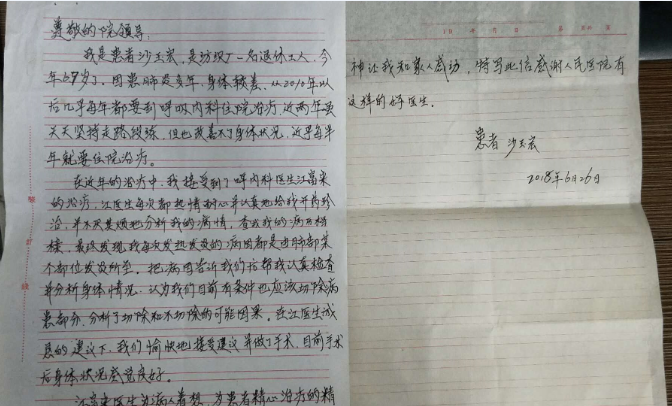 尊敬的院领导,
我是患者沙玉宏,是纺织厂一名退休工人,今
年67岁了。因患肺炎多年,身体较差,从2010年以
后几乎每年都要到呼吸内科住院治疗,这两年虽
天天坚持走路锻练,但也改善不了身体状况,近乎每半
年就要住院治疗。
在近年的治疗中,我接受到了呼内科医生江富来
的治疗,江医生每次都热情耐心并认真地给我开药诊
治,并不厌其烦地分析我的病情,查找我的病历档
案,最终发现我每次发热发炎的病因都是由肺部某
个部位发炎所至。把病因告诉我们后帮我认真检查
并分析身体情况,认为我们目前有条件也应该切除病
患部分,分析了切除和不切除的可能因果。在江医生诚
恳的建议下,我们愉快地接受建议并做了手术,目前手术
后身体状况感觉良好。
江富来医生为病人着想,为患者精心治疗的精
神让我和家人感动,特写此信感谢人民医院有
这样的好医生。
患者 沙玉宏
2018年6月26日